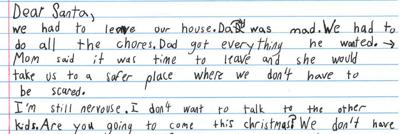 Dear Santa,
we had to leave our house. Dad was mad. We had to
do all the chores. Dad got everything he wanted. →
Mom said it was time to leave and she would
take us to a safer place where we don't have to
be scared.
I'm still nervouse. I don't want to talk to the other
kids. Are you going to come this christmas? We don't have